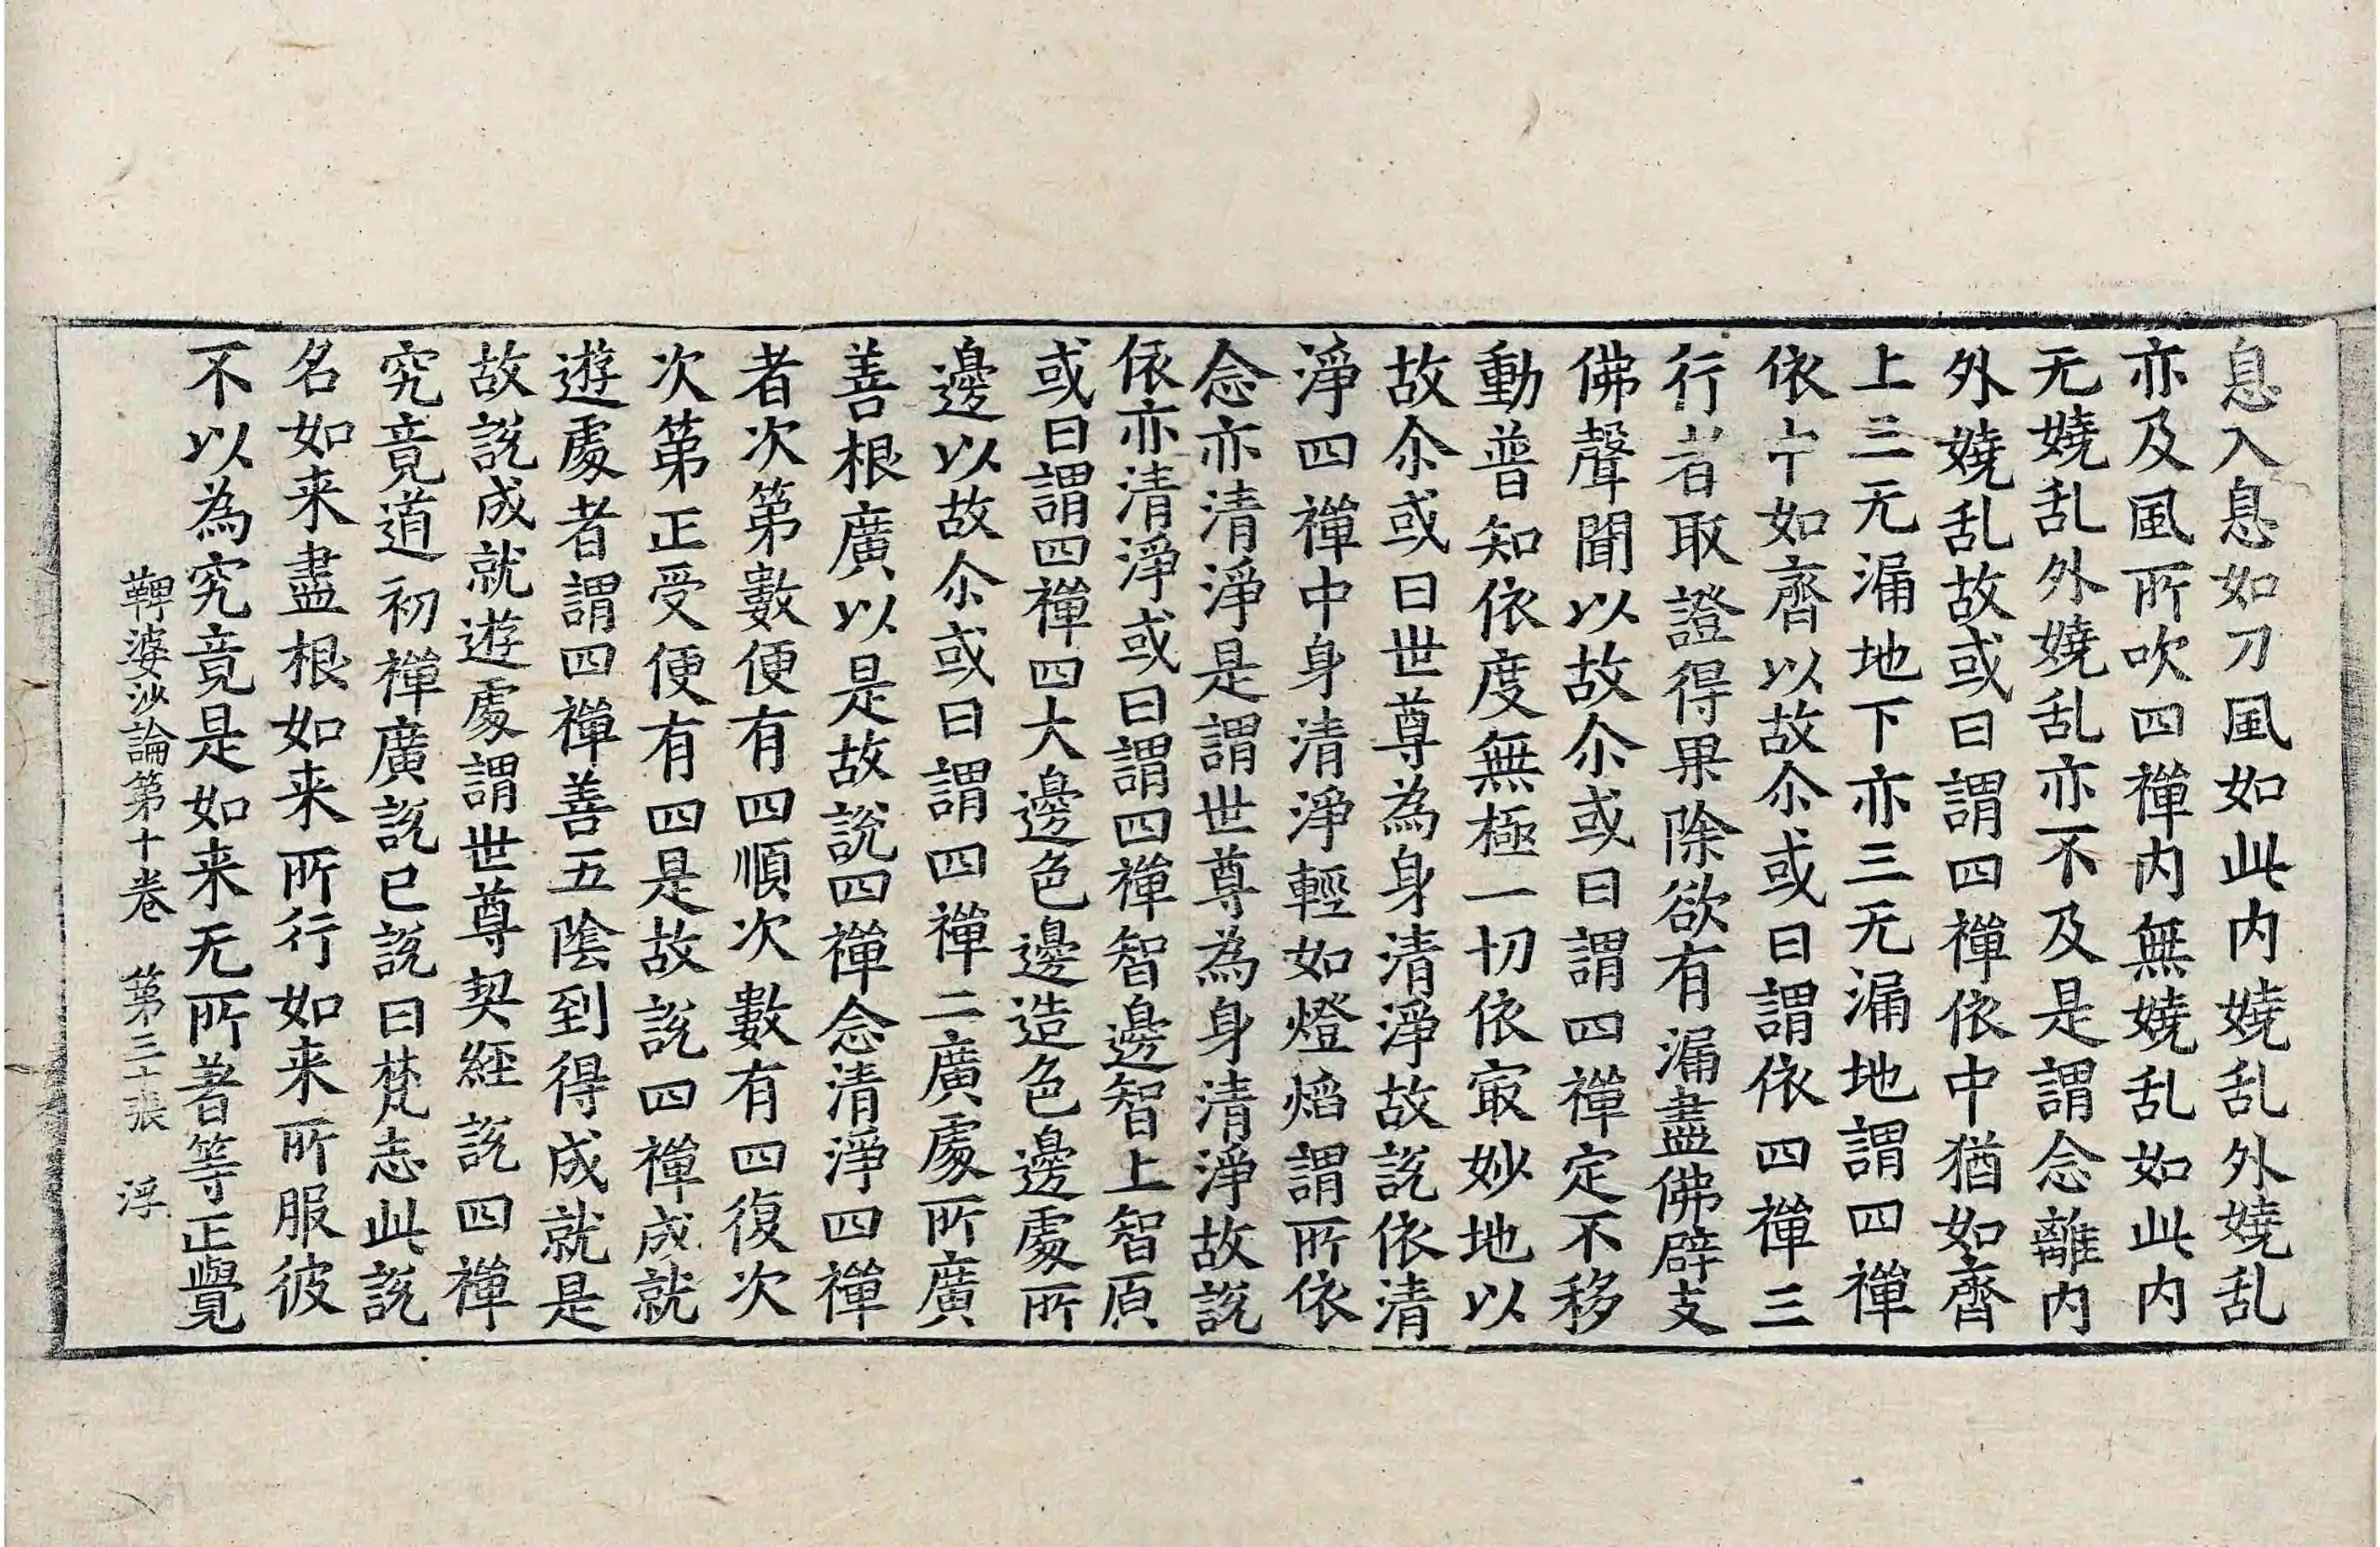 息入息如刀風如此内嬈乱外嬈乱
亦及風所吹四禪内無嬈乱如此内
无嬈乱外嬈乱亦不及是謂念離内
外嬈乱故或曰謂四禪依中猶如齊
上三无漏地下亦三无漏地謂四禪
依中如齊以故尒或曰謂依四禪三
行者取證得果除欲有漏盡佛辟支
佛聲聞以故尒或曰謂四禪定不移
動普知依度無極一切依㝡妙地以
故尒或曰世尊為身清淨故説依清
淨四禪中身清淨輕如燈焰謂所依
念亦清淨是謂世尊為身清淨故説
依亦清淨或曰謂四禪智邊智上智原
或曰謂四禪四大邊色邊造色邊處所
邊以故尒或曰謂四禪二廣處所廣
善根廣以是故説四禪念清淨四禪
者次第數便有四順次數有四復次
次第正受便有四是故説四禪成就
遊處者謂四禪善五陰到得成就是
故説成就遊處謂世尊契經説四禪
究竟道初禪廣説已説曰梵志此説
名如来盡根如来所行如来所服彼
不以為究竟是如来无所著等正覺
鞞婆沙論第十卷　第三十張　浮